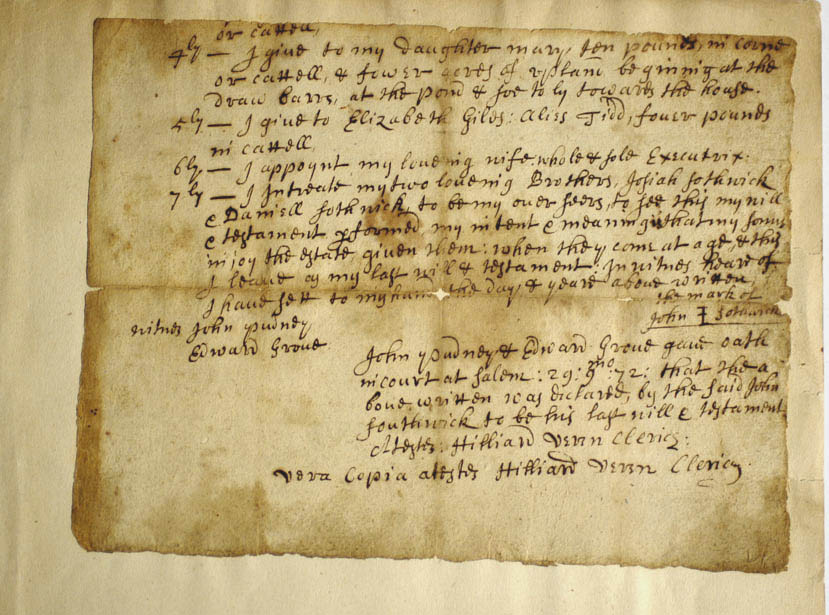 or cattell,
4ly — I give to my daughter mary, ten pounds, in corne
or cattell, & fower acres of vpland beginnig at the
draw barrs, at the pond & soe to ly towards the house.
5ly — I give to Elizabeth Giles: Alies Tidd, fouer pounds
in cattell,
6ly — I appoynt my loveing wife, whole & sole Executrix:
7ly — I Intreate my two loveing Brothers, Josiah sothwick
& Daniell sothwick, to be my over seers, to see this my will
& testament pformed my intent & meaning is that my sonns
injoy the estate given them: when they come at age, & this
I leave as my last will & testament: In witnes heare of
I have sett to my hand the day, & yeare above written,
the mark of
John Sothwick
witnes John Pudney
Edward Grove
John Pudney & Edward Grove gave oath
in court at salem: 29: 9mo: 72: that the a
bove written was declared, by the said John
southwick to be his last will & testament
Atestes: Hilliard Veren Cleric:
vera Copia atestes Hilliard Veren Cleric